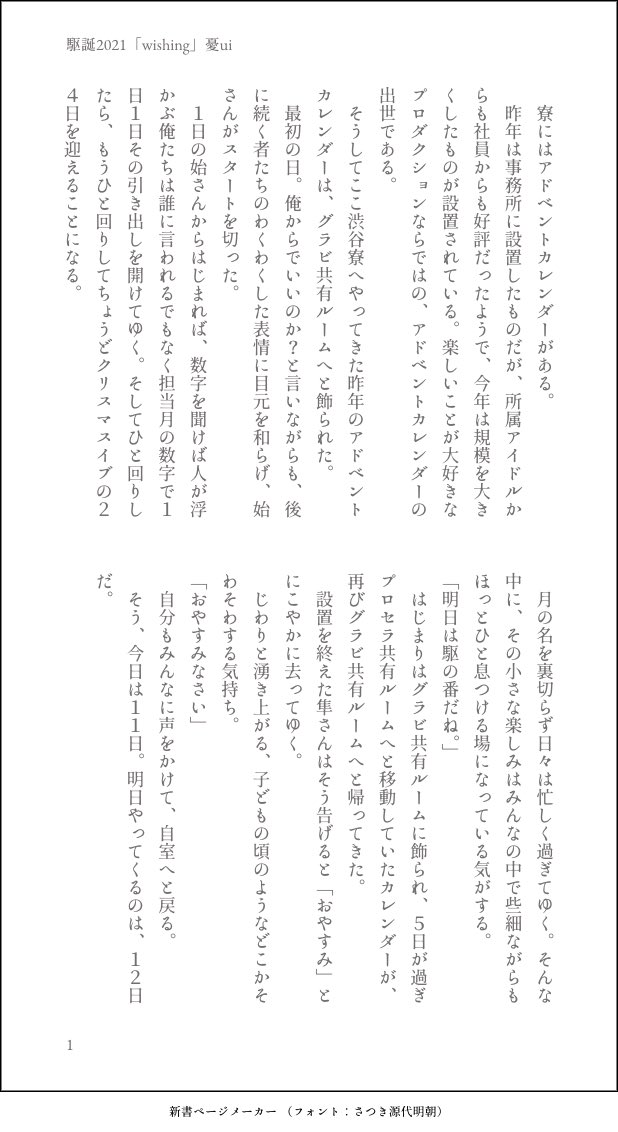 駆誕2021「wishing」憂ui
寮にはアドベントカレンダーがある。
昨年は事務所に設置したものだが、所属アイドルか
らも社員からも好評だったようで、今年は規模を大き
くしたものが設置されている。楽しいことが大好きな
プロダクションならではの、アドベントカレンダーの
出世である。
そうしてここ渋谷寮へやってきた昨年のアドベント
カレンダーは、グラビ共有ルームへと飾られた。
最初の日。俺からでいいのか？と言いながらも、後
に続く者たちのわくわくした表情に目元を和らげ、始
さんがスタートを切った。
１日の始さんからはじまれば、数字を聞けば人が浮
かぶ俺たちは誰に言われるでもなく担当月の数字で１
日１日その引き出しを開けてゆく。そしてひと回りし
たら、もうひと回りしてちょうどクリスマスイブの２
４日を迎えることになる。
月の名を裏切らず日々は忙しく過ぎてゆく。そんな
中に、その小さな楽しみはみんなの中で些細ながらも
ほっとひと息つける場になっている気がする。
「明日は駆の番だね。」
はじまりはグラビ共有ルームに飾られ、５日が過ぎ
プロセラ共有ルームへと移動していたカレンダーが、
再びグラビ共有ルームへと帰ってきた。
設置を終えた隼さんはそう告げると「おやすみ」と
にこやかに去ってゆく。
じわりと湧き上がる、子どもの頃のようなどこかそ
わそわする気持ち。
「おやすみなさい」
自分もみんなに声をかけて、自室へと戻る。
そう、今日は１１日。明日やってくるのは、１２日
だ。
1
新書ページメーカー （フォント：さつき源代明朝）